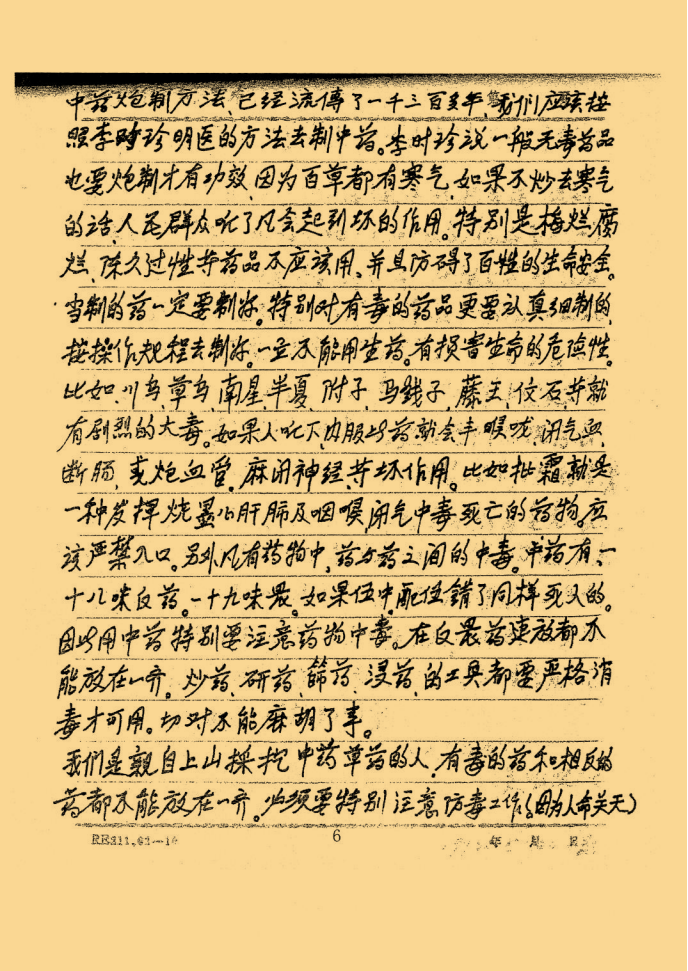 中药炮制方法,已经流傳了一千三百多年,我们应该按
照李時珍明医的方法去制中药。李时珍说一般无毒药品
也要炮制才有功效,因为百草都有寒气,如果不炒去寒气
的话,人民群众吃了凡会起到坏的作用。特别是梅烂腐
烂,陈久过性等药品不应该用、并且防碍了百性的生命安全。
当制的药一定要制好。特别对有毒的药品更要认真细制的,
按操作规程去制好。一定不能用生药。有损害生命的危险性。
比如,川乌,草乌,南星,半夏,附子,马钱子,藤王,信石等就
有剧烈的大毒。如果人吃下内服此药就会丰喉咙,闭气血,
断肠,或炮血管,麻闭神经等坏作用。比如批霜就是
一种发挥烧墨心肝肺及咽喉,闭气中毒死亡的药物。应
该严禁入口。另外凡有药物中,药与药之间的中毒。中药有,一
十八味反药。一十九味畏。如果伍中,配伍錯了同样死人的。
因此用中药特别要注意药物中毒。在反畏药建放都不
能放在一齐。炒药、研药、篩药、浸药、的工具都要严格消
毒才可用。切对不能麻胡了事。
我们是親自上山採挖中药草药的人,有毒的药和相反的
药都不能放在一齐。必须要特别注意防毒工作(因为人命关天)
RE211.02-10 6 年 月 日